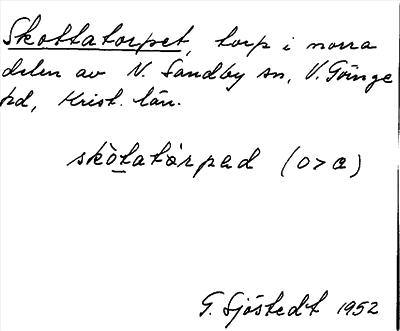 Skottatorpet, torp i norra
delen av N. Sandby sn, V. Göinge
hd, Krist. län.
skòtatòrpad (o>a)
G. Sjöstedt 1952